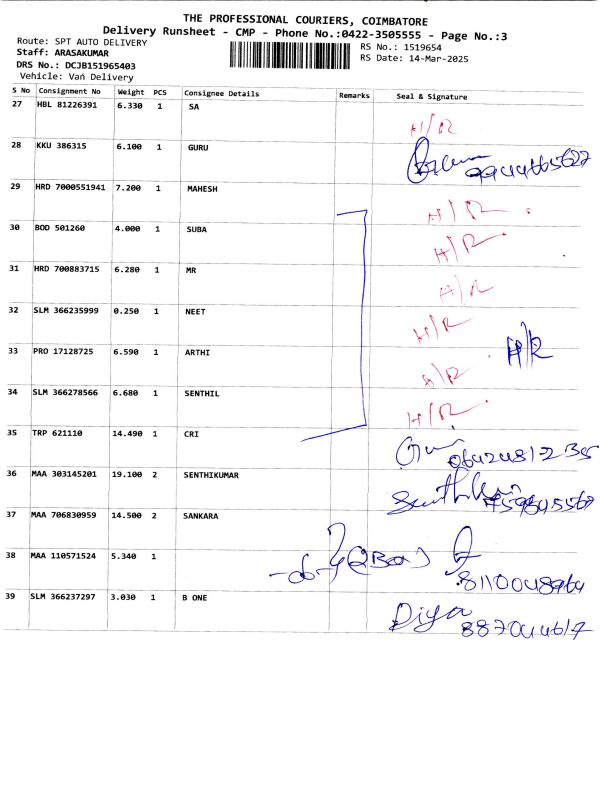 THE PROFESSIONAL COURIERS, COIMBATORE
Delivery Runsheet - CMP - Phone No.:0422-3505555 - Page No.:3
Route: SPT AUTO DELIVERY
Staff: ARASAKUMAR
DRS No.: DCJB151965403
Vehicle: Van Delivery
RS No.: 1519654
RS Date: 14-Mar-2025
S No Consignment No Weight PCS Consignee Details Remarks Seal & Signature
27 HBL 81226391 6.330 1 SA H/R
28 KKU 386315 6.100 1 GURU
29 HRD 7000551941 7.200 1 MAHESH H/R
30 BOD 501260 4.000 1 SUBA H/R
31 HRD 700883715 6.280 1 MR H/R
32 SLM 366235999 0.250 1 NEET H/R
33 PRO 17128725 6.590 1 ARTHI H/R H/R
34 SLM 366278566 6.680 1 SENTHIL H/R
35 TRP 621110 14.490 1 CRI
36 MAA 303145201 19.100 2 SENTHIKUMAR
37 MAA 706830959 14.500 2 SANKARA
38 MAA 110571524 5.340 1
8110048964
39 SLM 366237297 3.030 1 B ONE Diya